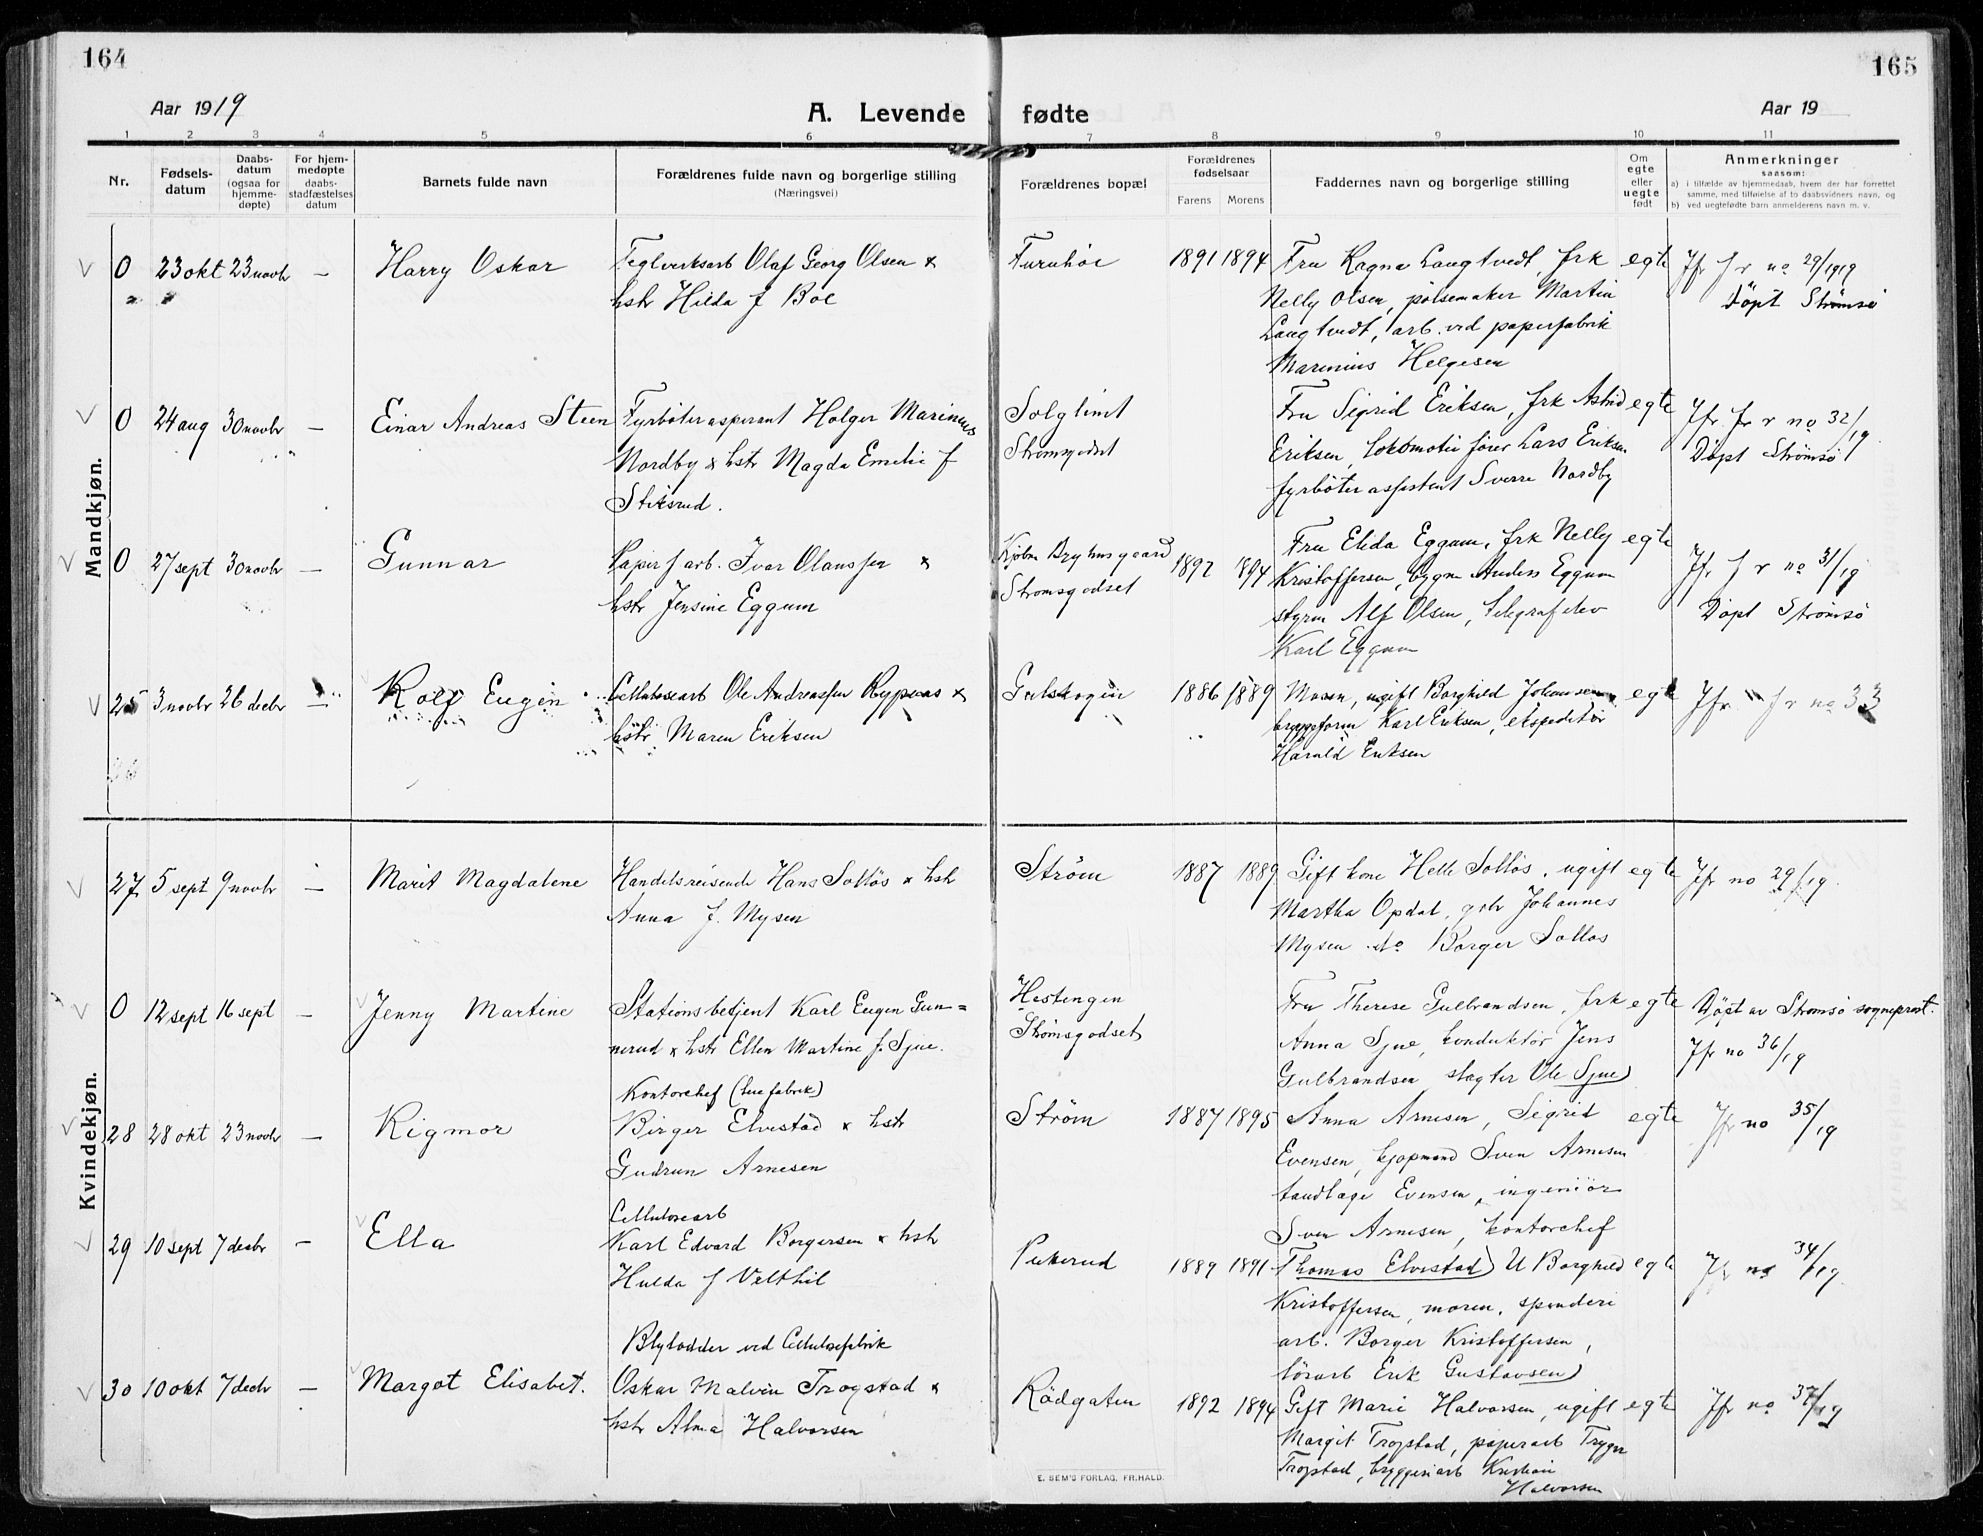 164
165
Aar 1919
A. Levende fødte
Aar 19
1 2 3 4 5 6 7 8 9 10 11
Nr.
Fødsels-
datum
Daabs-
datum
(ogsaa for
hjemme-
døpte)
For hjem-
medøpte
daabs-
stadfæstelses
datum
Barnets fulde navn
Forældrenes fulde navn og borgerlige stilling
(Næringsvei)
Forældrenes bopæl
Forældrenes
fødselsaar
Farens Morens
Faddernes navn og borgerlige stilling
Om
egte
eller
uegte
født
Anmerkninger
saasom:
a) i tilfælde av hjemmedaab, hvem der har forrettet
samme, med tilføielse af to daabsvidners navn, og
b) ved uegtefødte barn anmelderens navn m. v.
Mandkjøn.
0 23 okt 23 novbr — Harry Oskar
Teglverksarb Olaf Georg Olsen &
hstr Hilda f Boe
Furuhøi
1891 1894
Fru Ragna Langtvedt, frk
Nelly Olsen, pølsemaker Martin
Langtvedt, arb. ved papirfabrik
Marinius Helgesen
egte
Jfr f r no 29/1919
Døpt Strømsø
0 24 aug 30 novbr — Einar Andreas Steen
Fyrbøteraspirant Holger Marinius
Nordby & hstr Magda Emilie f
Stiksrud.
Solglimt
Strømsgodset
Fru Sigrid Eriksen, frk Astrid
Eriksen, lokomotivfører Lars Eriksen
fyrbøter assistent Sverre Nordby
egte
Jfr fr r no 32/19
Døpt Strømsø
0 27 sept 30 novbr — Gunnar
Papirf arb. Ivar Olaussen &
hstr Jensine Eggum
Kjøbm Bryhnsgaard
Strømsgodset
1892 1894
Fru Elida Eggum, frk Nelly
Kristoffersen, bygm Anders Eggum
styrm Alf Olsen, telegrafelev
Karl Eggum
egte
Jfr f r no 31/19
Døpt Strømsø
25 3 novbr 26 decbr — Rolf Eugen
Cellulosearb Ole Andreassen Rypaas &
hstr Maren Eriksen
Gulskogen
1886 1889
Moren, ugift Borghild Johansen,
bryggeform Karl Eriksen, ekspeditør
Harald Eriksen
egte
Jfr f r no 33
Kvindekjøn.
27 5 sept 9 novbr — Marit Magdalene
Handelsreisende Hans Solløs & hstr
Anna f. Mysen
Strøm
1887 1889
Gift kone Helle Solløs, ugift
Martha Opdal, gbr Johannes
Mysen do Borger Solløs
egte
Jfr no 29/19
0 12 sept 16 sept — Jenny Martine
Stationsbetjent Karl Eugen Gun=
nerud & hstr Ellen Martine f. Sjue.
Hestengen
Strømsgodset
Fru Therese Gulbrandsen, frk
Anna Sjue, konduktør Jens
Gulbrandsen slagter Ole Sjue)
egte
Døpt av Strømsø sogneprest.
Jfr no 36/19
28 28 okt 23 novbr — Rigmor
Kontorchef (lue fabrik)
Birger Elvestad & hstr
Gudrun Arnesen
Strøm
1887 1895
Anna Arnesen, Sigrid
Evensen, kjøpmand Sven Arnesen
tandlæge Evensen, ingeniør
Sven Arnesen, kontorchef
Thomas Elvestad)
egte
Jfr no 35/19
29 10 sept 7 decbr — Ella
Cellulosearb
Karl Edvard Borgersen & hstr
Hulda f Velthil
Pukerud
1889 1891
U Borghild
Kristoffersen, moren, spinderi
arb. Borger Kristoffersen,
lörarb Erik Gustavsen)
egte
Jfr no 34/19
30 10 okt 7 decbr — Margot Elisabet.
Blylodder ved Cellulosefabrik
Oskar Malvin Trogstad &
hstr Alma Halvorsen
Rödgaten
1892 1894
Gift Marie Halvorsen, ugift
Margit Trogstad, papirarb Trygve
Trogstad, bryggeriarb Kristian
Halvorsen
egte
Jfr no 37/19
E. SEM'S FORLAG, FR.HALD.